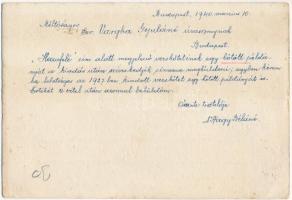 Budapest, 1940. március 10.
Méltóságos
Dr. Vargha Gyuláné úrasszonynak
Budapest.
"Harmfű" cím alatt megjelenő verskötetének egy kötött példá-
nyát a kiadás után szíveskedjék címemre megküldeni; egyben kérem
ha lehetséges az 1927 ben kiadott verskötet egy kötött példányát is.
Költségét a vétel után azonnal beküldöm.
Őszinte tisztelője
Nagy Béláné